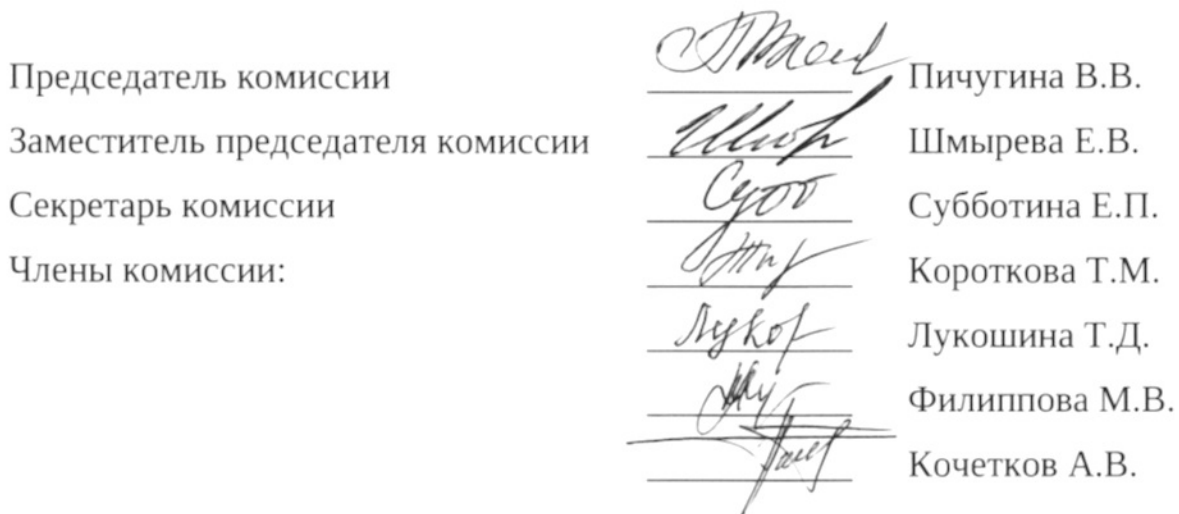 Председатель комиссии Пичугина В.В.
Заместитель председателя комиссии Шмырева Е.В.
Секретарь комиссии Субботина Е.П.
Члены комиссии: Короткова Т.М.
Лукошина Т.Д.
Филиппова М.В.
Кочетков А.В.